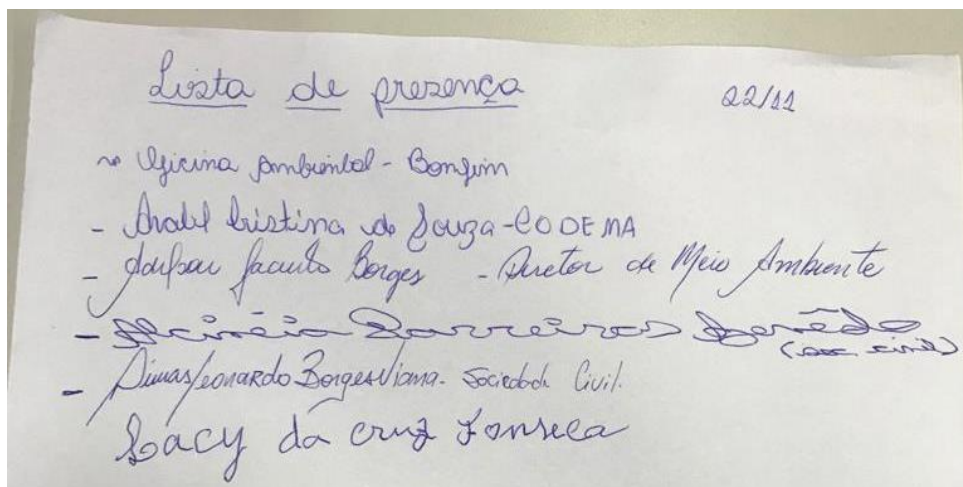 Lista de presença 22/11
Oficina Ambiental - Bonfim
- Anabel Cristina de Souza - CODEMA
- Jacinto Borges - Diretor de Meio Ambiente
- Alcinéia Barreiros (soc civil)
- Dimas Leonardo Borges Viana - Sociedade Civil.
Lacy da Cruz Fonseca